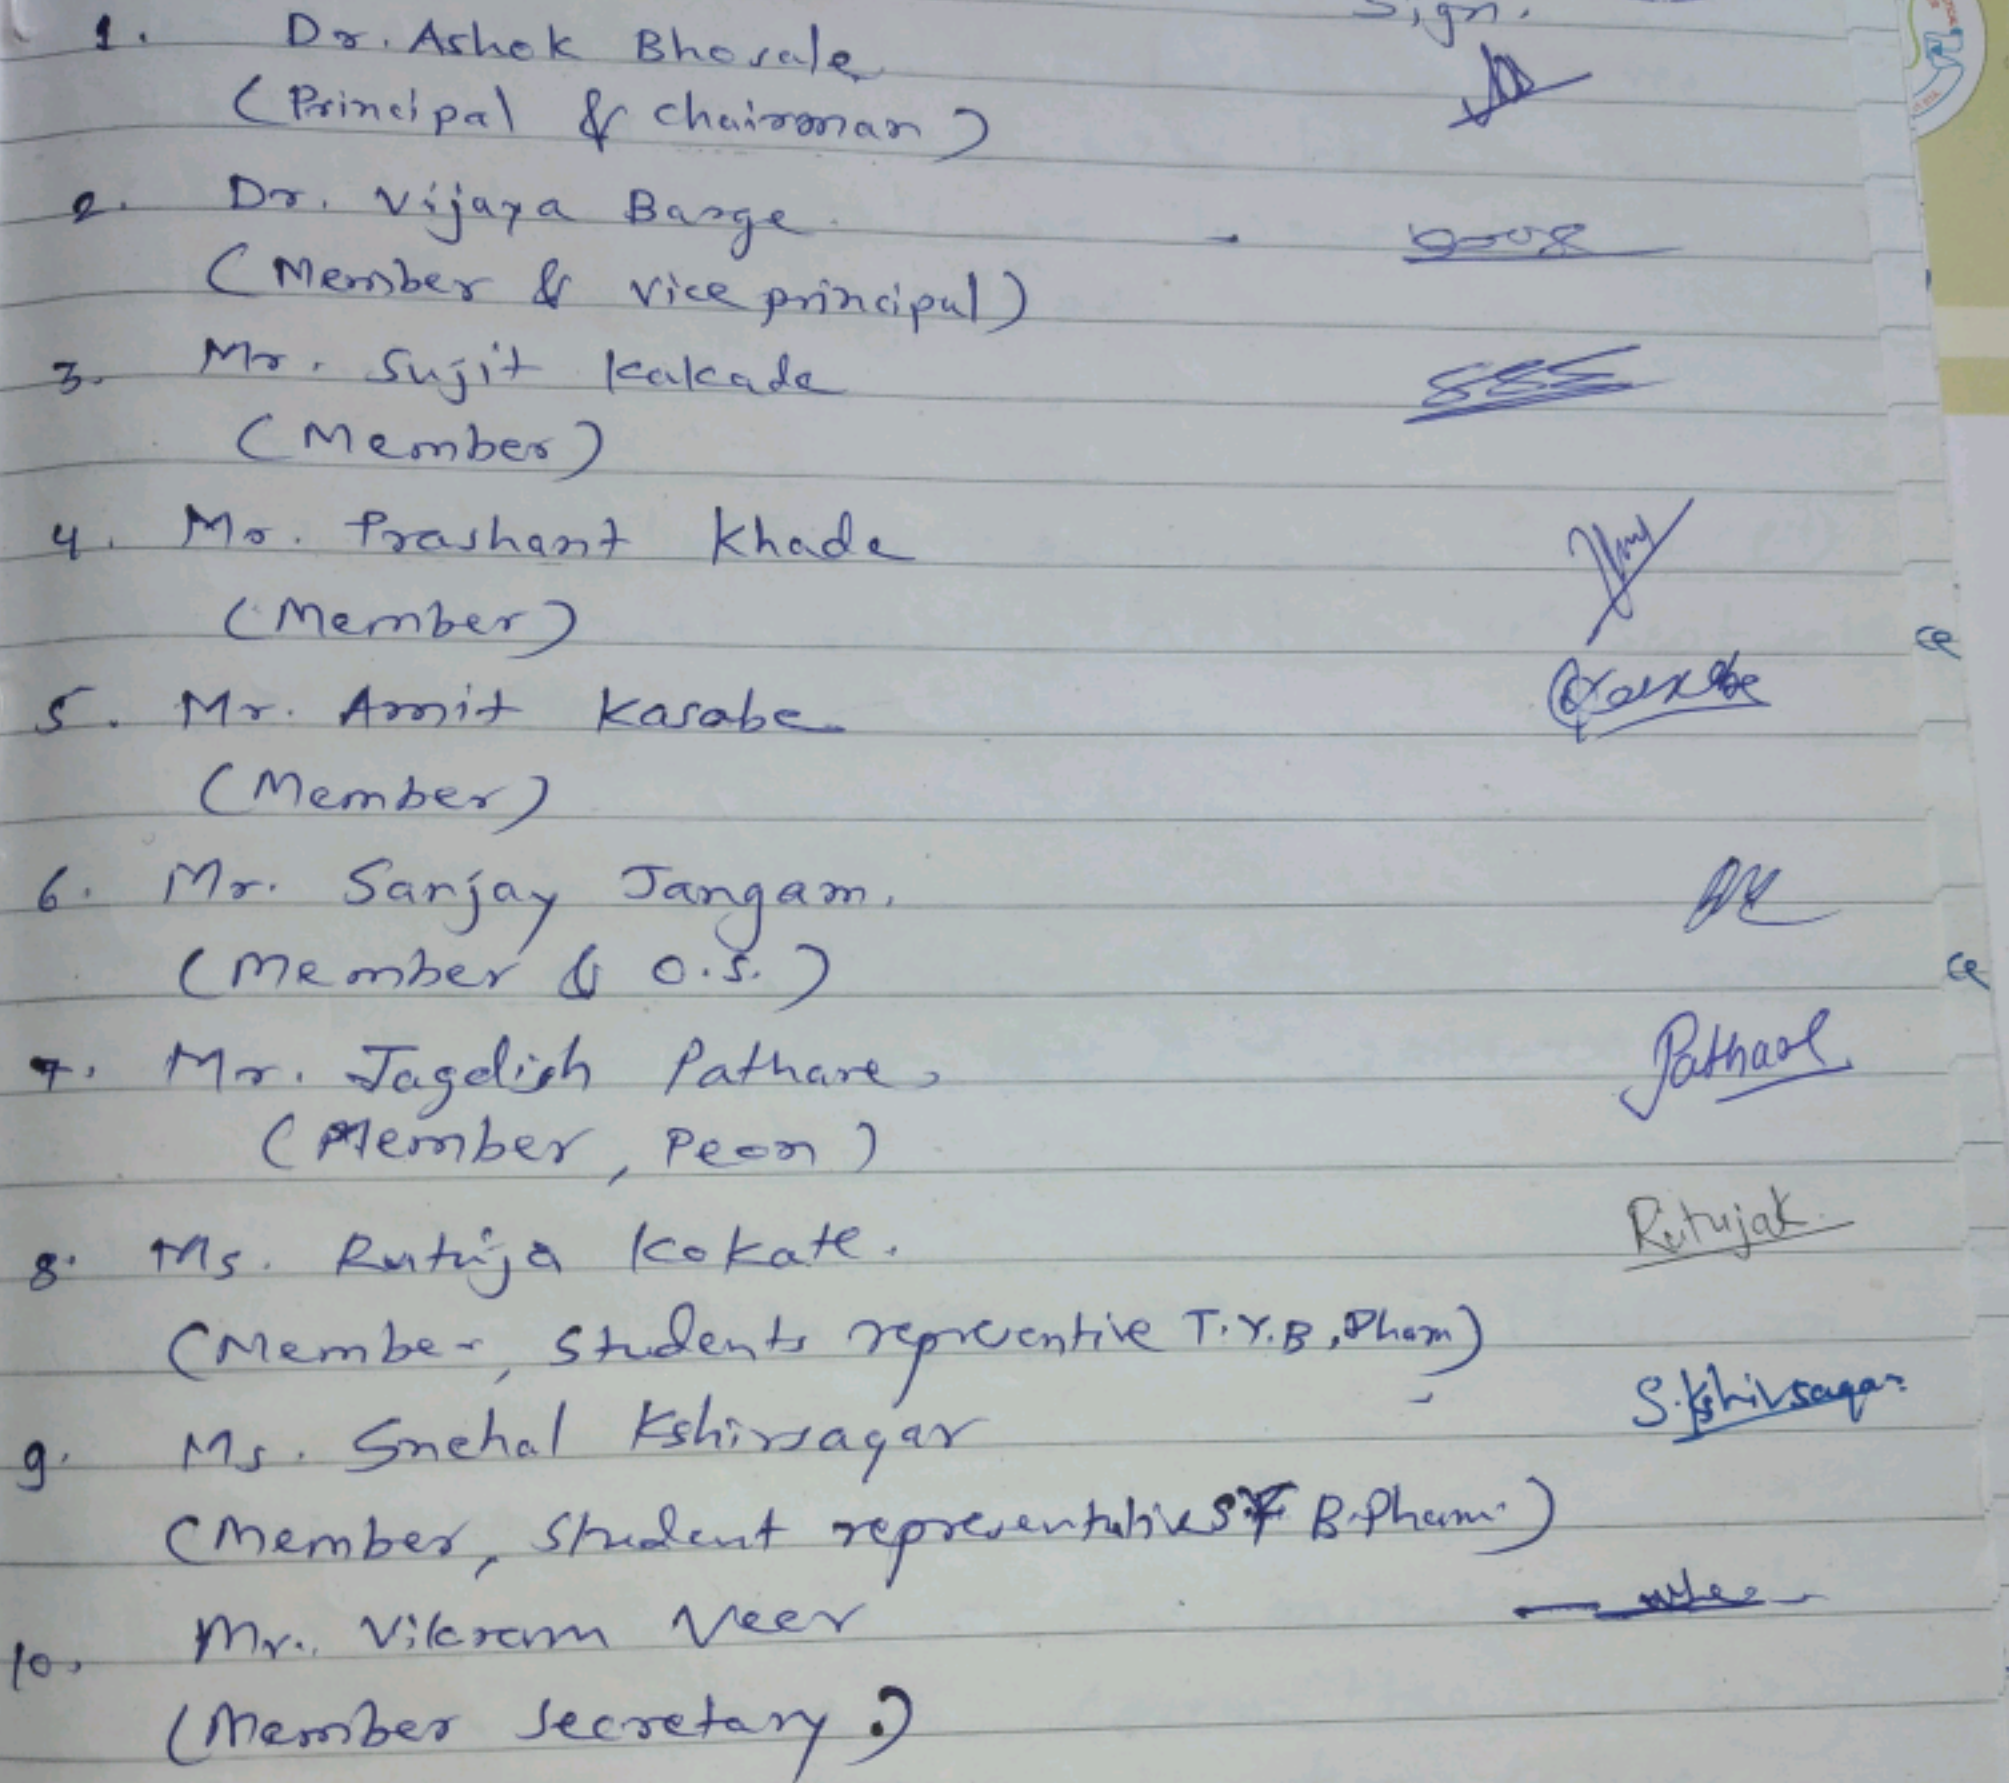 Sign.
1. Dr. Ashok Bhosale
(Principal & chairman)
2. Dr. Vijaya Barge
(Member & vice principal)
3. Mr. Sujit Kakade
(Member)
4. Mr. Prashant Khade
(Member)
5. Mr. Amit Kasabe
(Member)
6. Mr. Sanjay Jangam.
(Member & O.S.)
7. Mr. Jagdish Pathare, Pathare
(Member, Peon)
8. Ms. Rutuja Kokate. Rutujak
(Member, Students repreventive T.Y.B, Pham)
9. Ms. Snehal Kshirsagar S.Kshirsagar
(Member, Student representative B.Pham.)
10. Mr. Vikram Veer
(Member Secretary.)